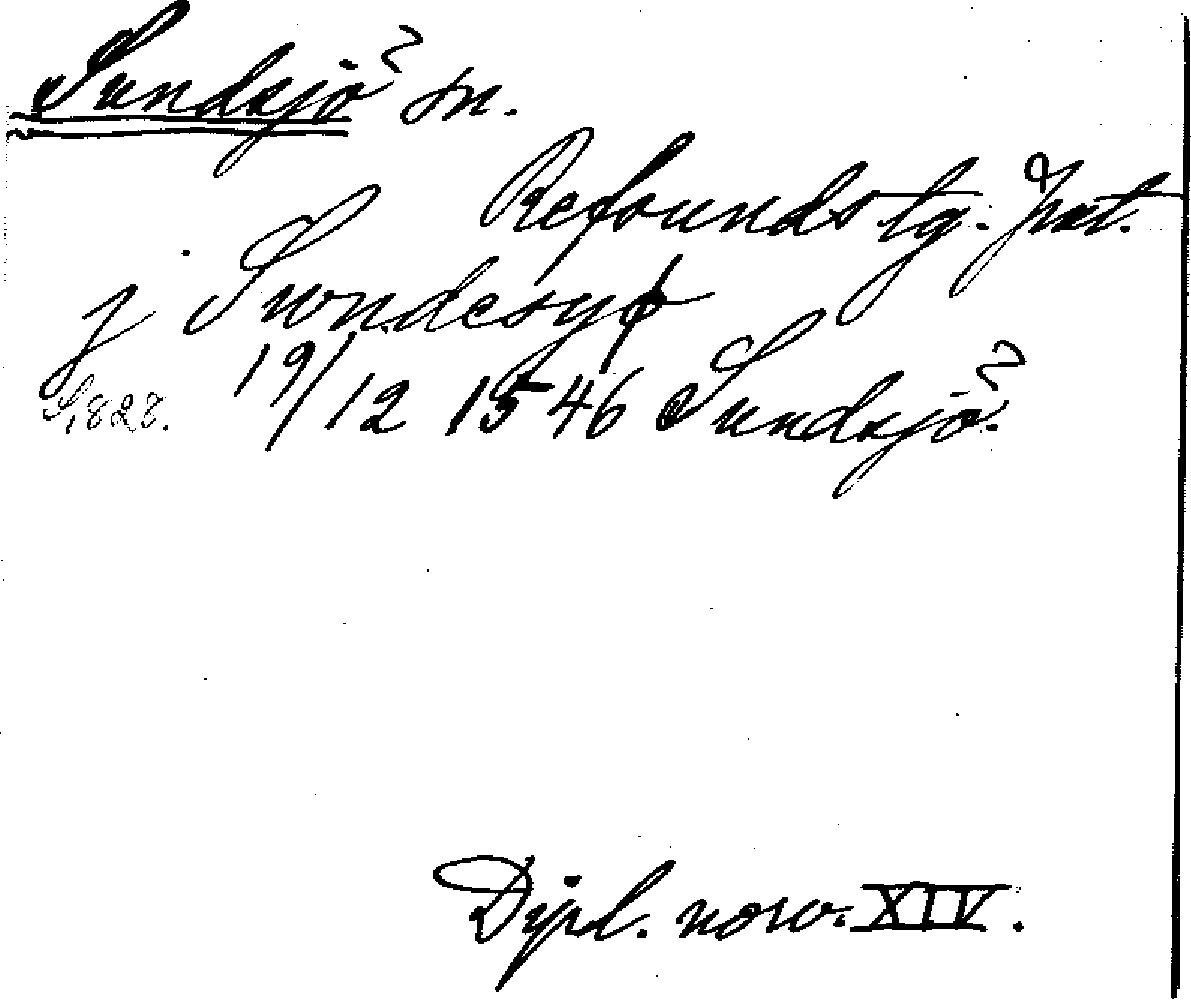 Sundsjö sn.
Refsunds tg. Jmt.
j Swndesyø
S. 828. 19/12 1546 Sundsjö.
Dipl. norv. XIV.